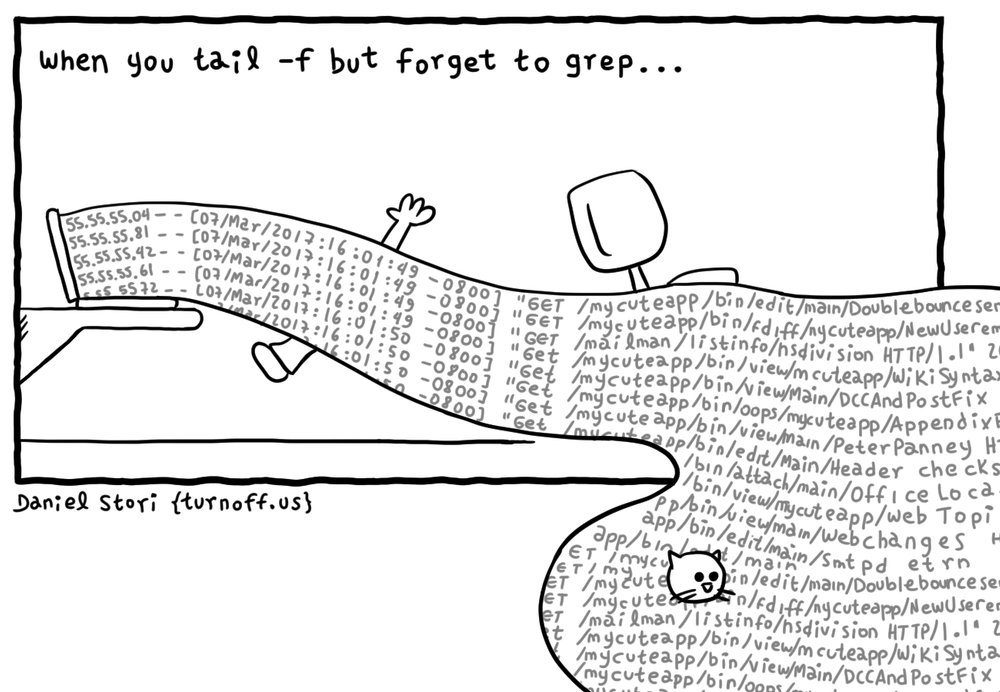 when you tail -f but forget to grep...
55.55.55.04 - - [07/Mar/2017:16:01:49 -0800] "GET /mycuteapp/bin/edit/main/Doublebouncesen
55.55.55.81 - - [07/Mar/2017:16:01:49 -0800] "GET /mycuteapp/bin/rdiff/nycuteapp/NewUserem
55.55.55.42 - - [07/Mar/2017:16:01:49 -0800] "GET /mailman/listinfo/hsdivision HTTP/1.1" 2
55.55.55.61 - - [07/Mar/2017:16:01:50 -0800] "Get /mycuteapp/bin/view/mcuteapp/WiKiSyntax
55.5572 - - [07/Mar/2017:16:01:50 -0800] "Get /mycuteapp/bin/view/Main/DCCAndPostFix
mar/2017:16:01:50 -0800] "Get /mycuteapp/bin/oops/mycuteapp/AppendixF
16:01:50 -0800] "Get /mycuteapp/bin/view/main/PeterPanney H
-0800] "Get /mycuteapp/bin/edit/Main/Header checks
/bin/attach/main/Office Loca
/bin/view/mycuteapp/Web Topi
pp/bin/view/main/Webchanges H
app/bin/edit/main/Smtpd etrn
app/bin/edit/main
ET /mycute bin/edit/main/Doublebouncesen
ET /mycute in/rdiff/nycuteapp/NewUserem
ET /mailman/listinfo/hsdivision HTTP/1.1" 2
et /mycuteapp/bin/view/mcuteapp/WiKiSynta
/mycuteapp/bin/view/Main/DCCAndPostFix
/mycuteapp/bin/oops/mycuteapp
Daniel Stori {turnoff.us}